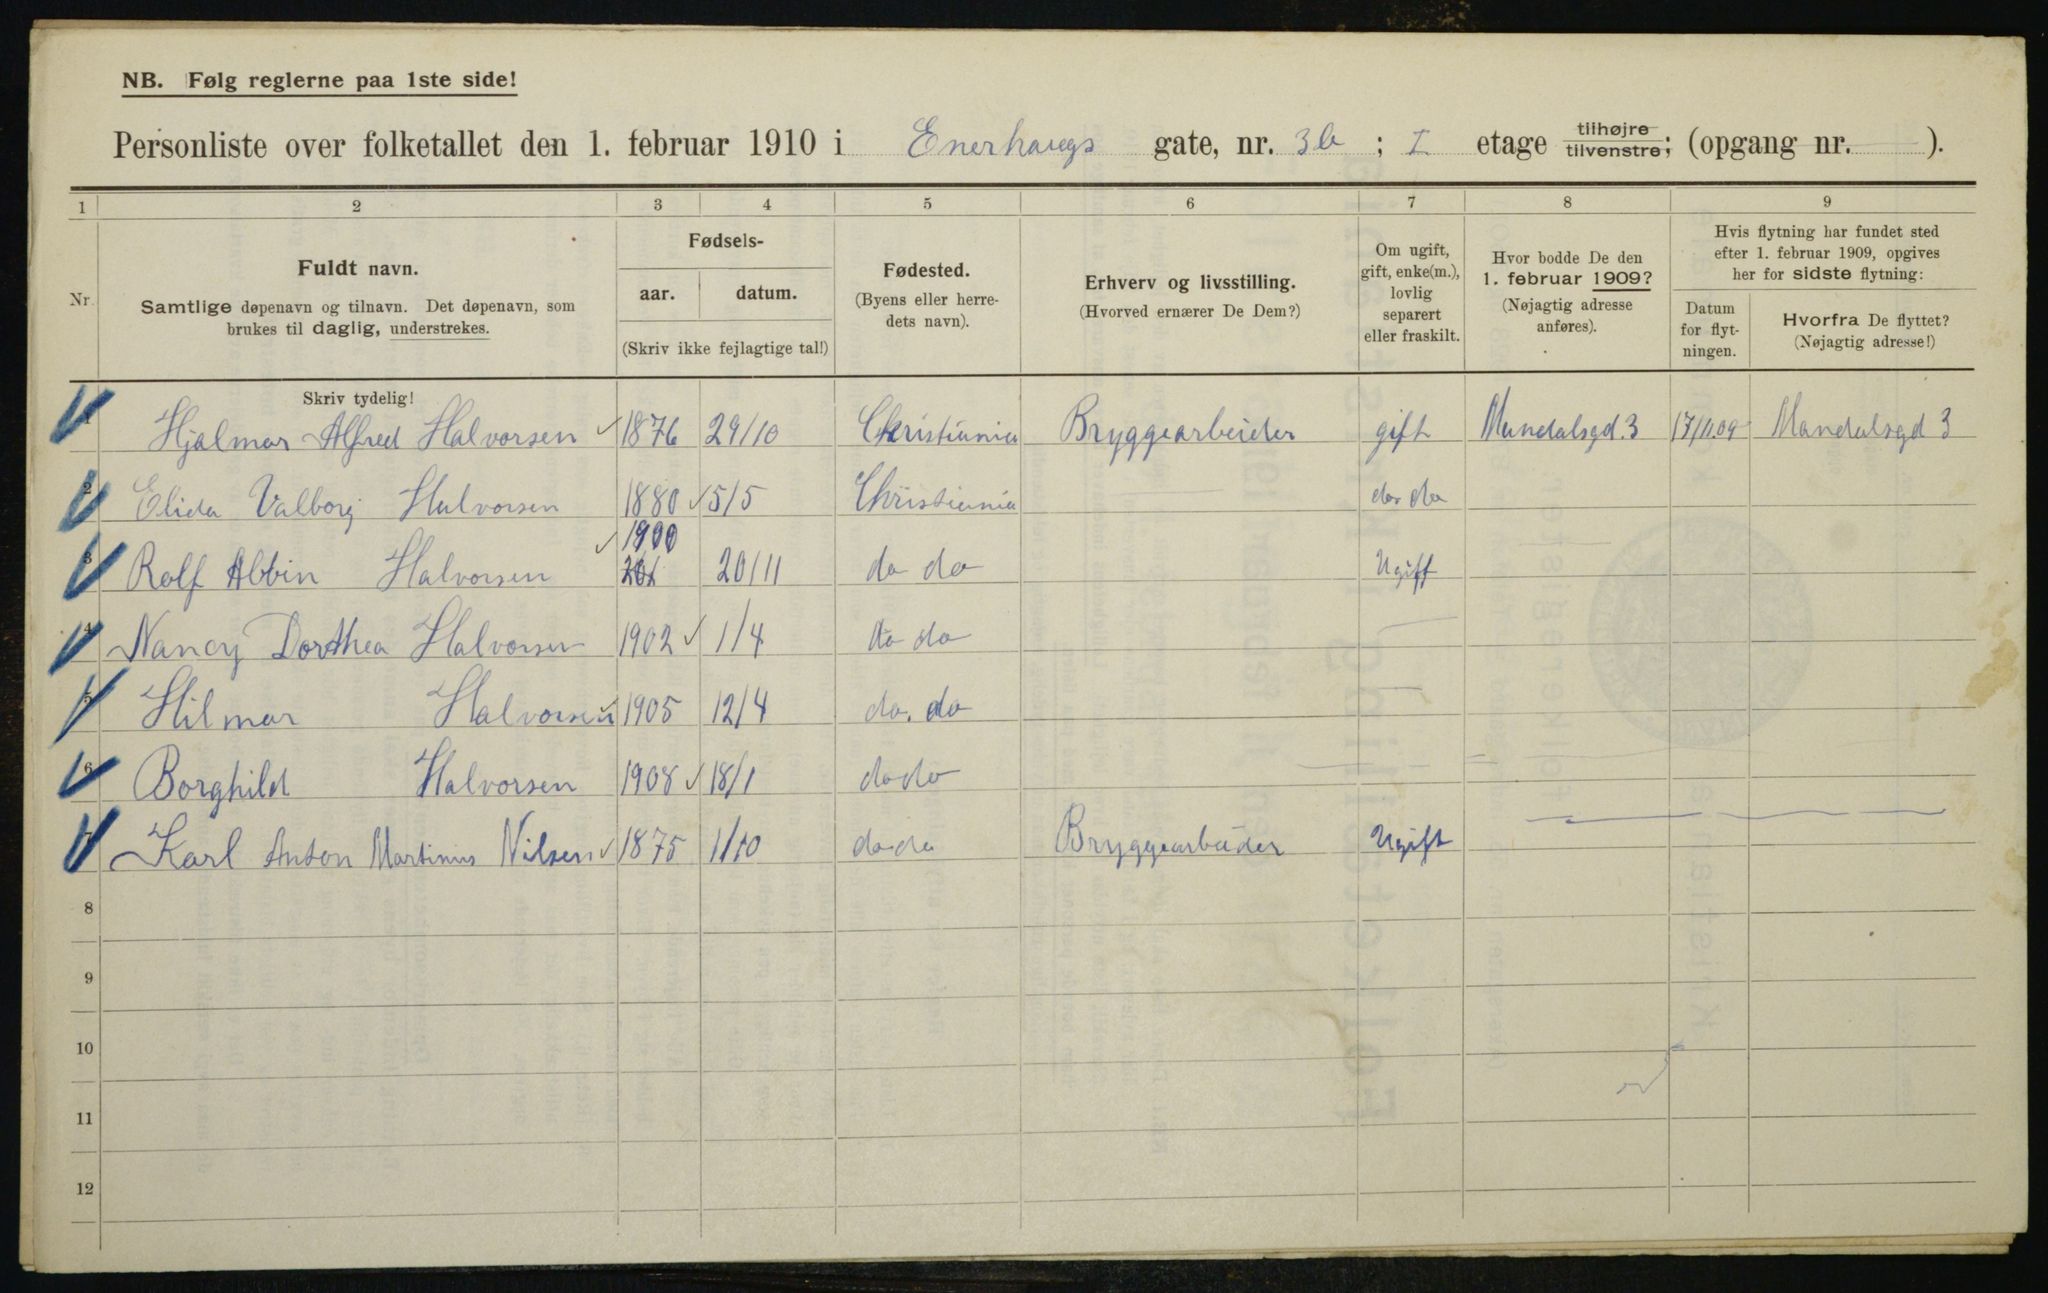 NB. Følg reglerne paa 1ste side!
Personliste over folketallet den 1. februar 1910 i Enerhaugs gate, nr. 3b ; I etage tilhøjre tilvenstre; (opgang nr. — ).
1 2 3 4 5 6 7 8 9
Nr.
Fuldt navn.
Samtlige døpenavn og tilnavn. Det døpenavn, som
brukes til daglig, understrekes.
Fødsels-
aar. datum.
(Skriv ikke fejlagtige tal!)
Fødested.
(Byens eller herre-
dets navn).
Erhverv og livsstilling.
(Hvorved ernærer De Dem?)
Om ugift,
gift, enke(m.),
lovlig
separert
eller fraskilt.
Hvor bodde De den
1. februar 1909?
(Nøjagtig adresse
anføres).
Hvis flytning har fundet sted
efter 1. februar 1909, opgives
her for sidste flytning:
Datum
for flyt-
ningen.
Hvorfra De flyttet?
(Nøjagtig adresse!)
Skriv tydelig!
1 Hjalmar Alfred Halvorsen 1876 29/10 Christiania Bryggearbeider gift Mandalsgd. 3 17/11.09 Mandalsgd 3
2 Elida Valborg Halvorsen 1880 5/5 Christiania do do
3 Rolf Abbin Halvorsen 1900 20/11 do do Ugift
4 Nancy Dorthea Halvorsen 1902 1/4 do do
5 Hilmar Halvorsen 1905 12/4 do. do
6 Borghild Halvorsen 1908 18/1 do do
7 Karl Anton Martinius Nilsen 1875 1/10 do do Bryggearbeider Ugift
8
9
10
11
12